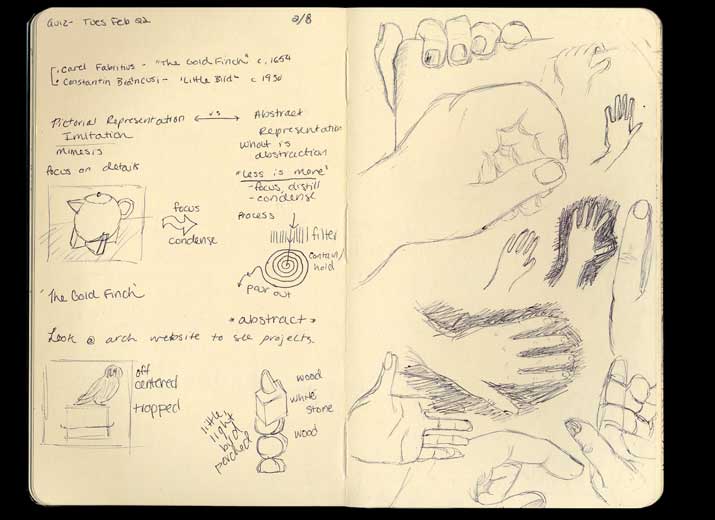 Quiz- Tues Feb 22
2/8
Carel Fabritius - "The Gold Finch" c. 1654
Constantin Brâncusi - "Little Bird" c 1930
Pictorial Representation
Imitation
mimesis
focus on details
vs
Abstract
Representation
What is
abstraction
"Less is more"
-focus, distill
-condense
Process
focus
condense
filter
contain/
hold
pour out
'The Gold Finch'
abstract
Look @ arch website to see projects.
off
centered
trapped
little
light
bird
perched
wood
white
stone
wood